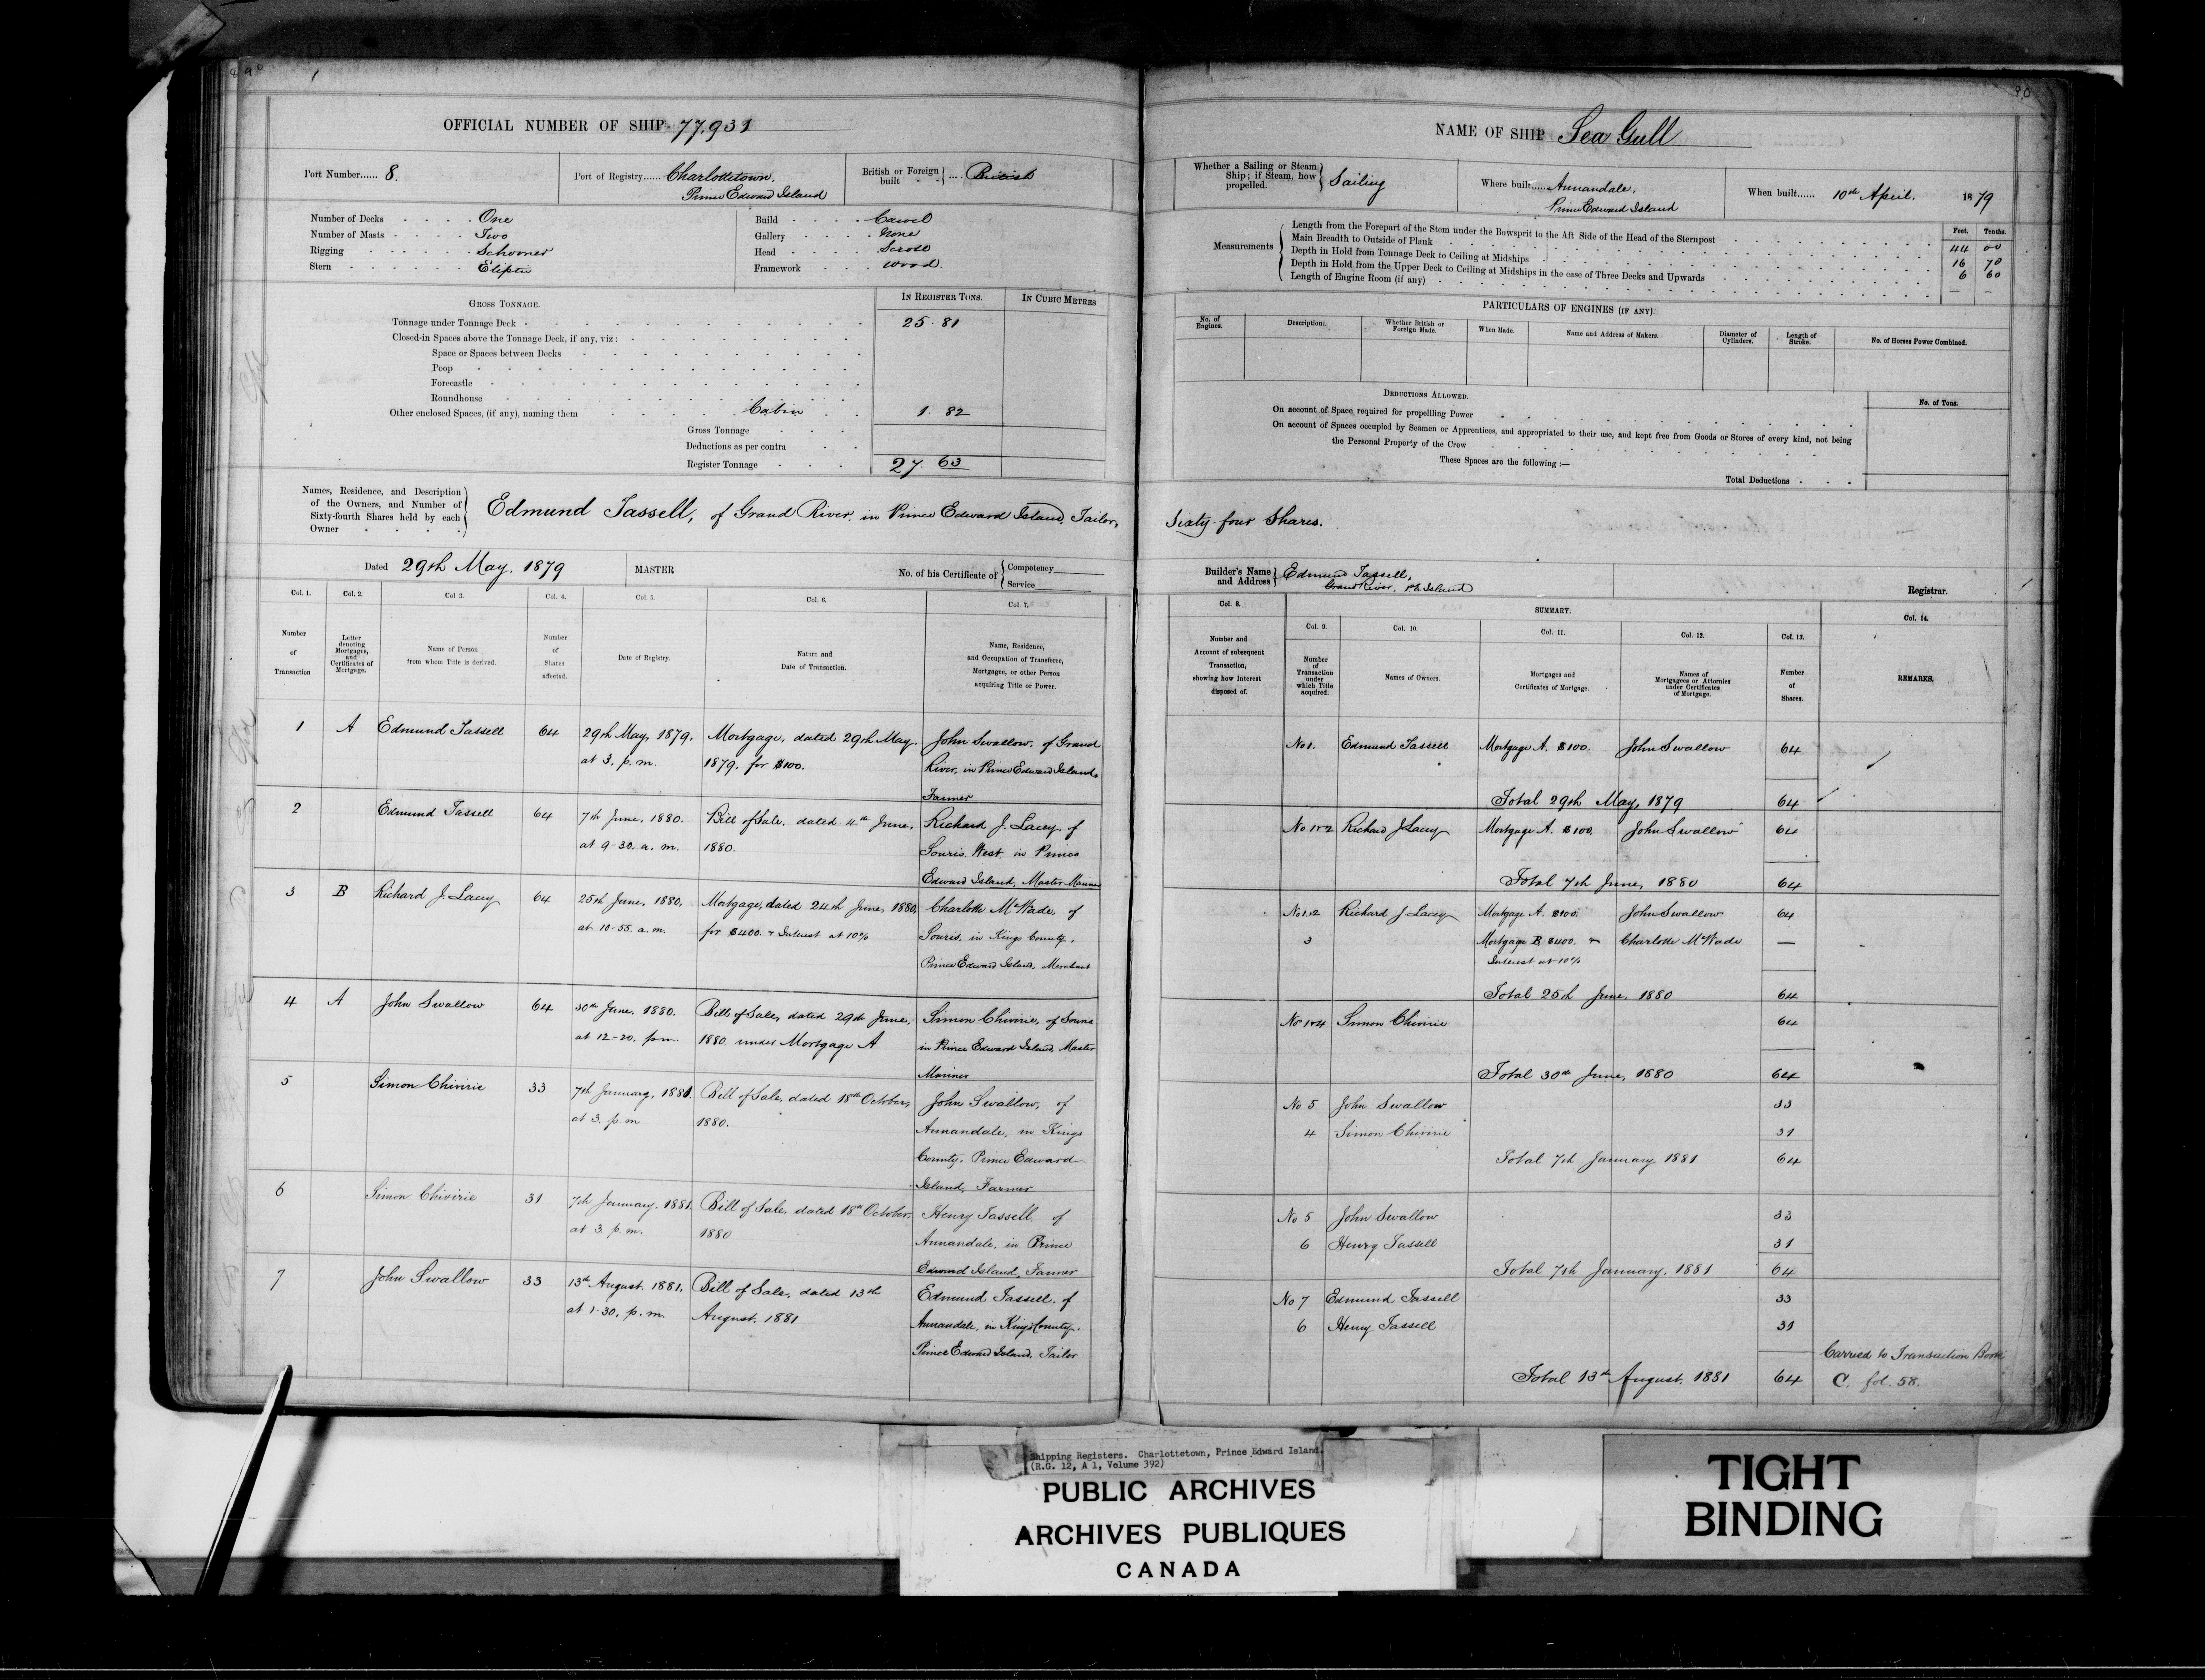 OFFICIAL NUMBER OF SHIP 77,931
Port Number...... 8.
Port of Registry...... Charlottetown,
Prince Edward Island
British or Foreign built .... British
Number of Decks One
Number of Masts Two
Rigging Schooner
Stern Eliptic
Build Carvel
Gallery None
Head Scroll
Framework Wood.
GROSS TONNAGE.
IN REGISTER TONS.
IN CUBIC METRES
Tonnage under Tonnage Deck 25.81
Closed-in Spaces above the Tonnage Deck, if any, viz:
Space or Spaces between Decks
Poop
Forecastle
Roundhouse
Other enclosed Spaces, (if any), naming them Cabin 1.82
Gross Tonnage
Deductions as per contra
Register Tonnage 27.63
Names, Residence, and Description
of the Owners, and Number of
Sixty-fourth Shares held by each
Owner
Edmund Tassell, of Grand River, in Prince Edward Island, Tailor,
Dated 29th May, 1879
MASTER
No. of his Certificate of Competency
Service
Col. 1. Col. 2. Col 3. Col. 4. Col. 5. Col. 6. Col. 7.
Number of Transaction
Letter denoting Mortgages, and Certificates of Mortgage.
Name of Person from whom Title is derived.
Number of Shares affected.
Date of Registry.
Nature and Date of Transaction.
Name, Residence, and Occupation of Transferee, Mortgagee, or other Person acquiring Title or Power.
1 A Edmund Tassell 64 29th May, 1879. Mortgage, dated 29th May. John Swallow, of Grand
at 3. p.m. 1879, for $100. River, in Prince Edward Island,
Farmer
2 Edmund Tassell 64 7th June, 1880. Bill of Sale, dated 4th June, Richard J. Lacey, of
at 9-30. a.m. 1880. Souris West in Prince
Edward Island, Master Mariner
3 B Richard J. Lacey 64 25th June, 1880, Mortgage, dated 24th June, 1880, Charlotte McWade, of
at 10-55. a.m. for $400. & Interest at 10% Souris, in Kings County,
Prince Edward Island, Merchant
4 A John Swallow 64 30th June, 1880. Bill of Sale, dated 29th June, Simon Chivirie, of Souris
at 12-20. pm. 1880. under Mortgage A in Prince Edward Island, Master
Mariner
5 Simon Chivirie 33 7th January, 1881. Bill of Sale, dated 18th October, John Swallow, of
at 3. p.m 1880. Annandale, in Kings
County, Prince Edward
Island, Farmer
6 Simon Chivirie 31 7th January, 1881. Bill of Sale, dated 18th October, Henry Tassell, of
at 3. p.m. 1880 Annandale, in Prince
Edward Island, Farmer
7 John Swallow 33 13th August, 1881, Bill of Sale, dated 13th Edmund Tassell, of
at 1-30, p.m. August, 1881 Annandale, in Kings County,
Prince Edward Island, Tailor
90
NAME OF SHIP Sea Gull
Whether a Sailing or Steam
Ship; if Steam, how
propelled. Sailing
Where built..... Annandale,
Prince Edward Island
When built...... 10th April, 1879
Measurements
Feet. Tenths.
Length from the Forepart of the Stem under the Bowsprit to the Aft Side of the Head of the Sternpost 44 00
Main Breadth to Outside of Plank 16 70
Depth in Hold from Tonnage Deck to Ceiling at Midships 6 60
Depth in Hold from the Upper Deck to Ceiling at Midships in the case of Three Decks and Upwards
Length of Engine Room (if any)
PARTICULARS OF ENGINES (IF ANY).
No. of Engines.
Description.
Whether British or Foreign Made.
When Made.
Name and Address of Makers.
Diameter of Cylinders.
Length of Stroke.
No. of Horses Power Combined.
DEDUCTIONS ALLOWED.
No. of Tons.
On account of Space required for propellling Power
On account of Spaces occupied by Seamen or Apprentices, and appropriated to their use, and kept free from Goods or Stores of every kind, not being
the Personal Property of the Crew
These Spaces are the following :—
Total Deductions
Sixty-four Shares.
Builder's Name and Address Edmund Tassell,
Grand River, P.E. Island
Registrar.
Col. 8. SUMMARY. Col. 14.
Col. 9. Col. 10. Col. 11. Col. 12. Col. 13.
Number and Account of subsequent Transaction, showing how Interest disposed of.
Number of Transaction under which Title acquired.
Names of Owners.
Mortgages and Certificates of Mortgage.
Names of Mortgagees or Attornies under Certificates of Mortgage.
Number of Shares.
REMARKS.
No 1. Edmund Tassell Mortgage A. $100. John Swallow 64
Total 29th May, 1879 64
No 1 & 2 Richard J Lacey Mortgage A. $100. John Swallow 64
Total 7th June, 1880 64
No 1 & 2 Richard J Lacey Mortgage A. $100. John Swallow 64
3 Mortgage B $400. & Charlotte McWade —
Interest at 10%
Total 25th June, 1880 64
No 1 & 4 Simon Chivirie 64
Total 30th June, 1880 64
No 5 John Swallow 33
4 Simon Chivirie 31
Total 7th January 1881 64
No 5 John Swallow 33
6 Henry Tassell 31
Total 7th January, 1881 64
No 7 Edmund Tassell 33
6 Henry Tassell 31
Carried to Transaction Book
Total 13th August. 1881 64 C. fol. 58.
Shipping Registers. Charlottetown, Prince Edward Island.
(R.G. 12, A 1, Volume 392)
PUBLIC ARCHIVES
ARCHIVES PUBLIQUES
CANADA
TIGHT
BINDING